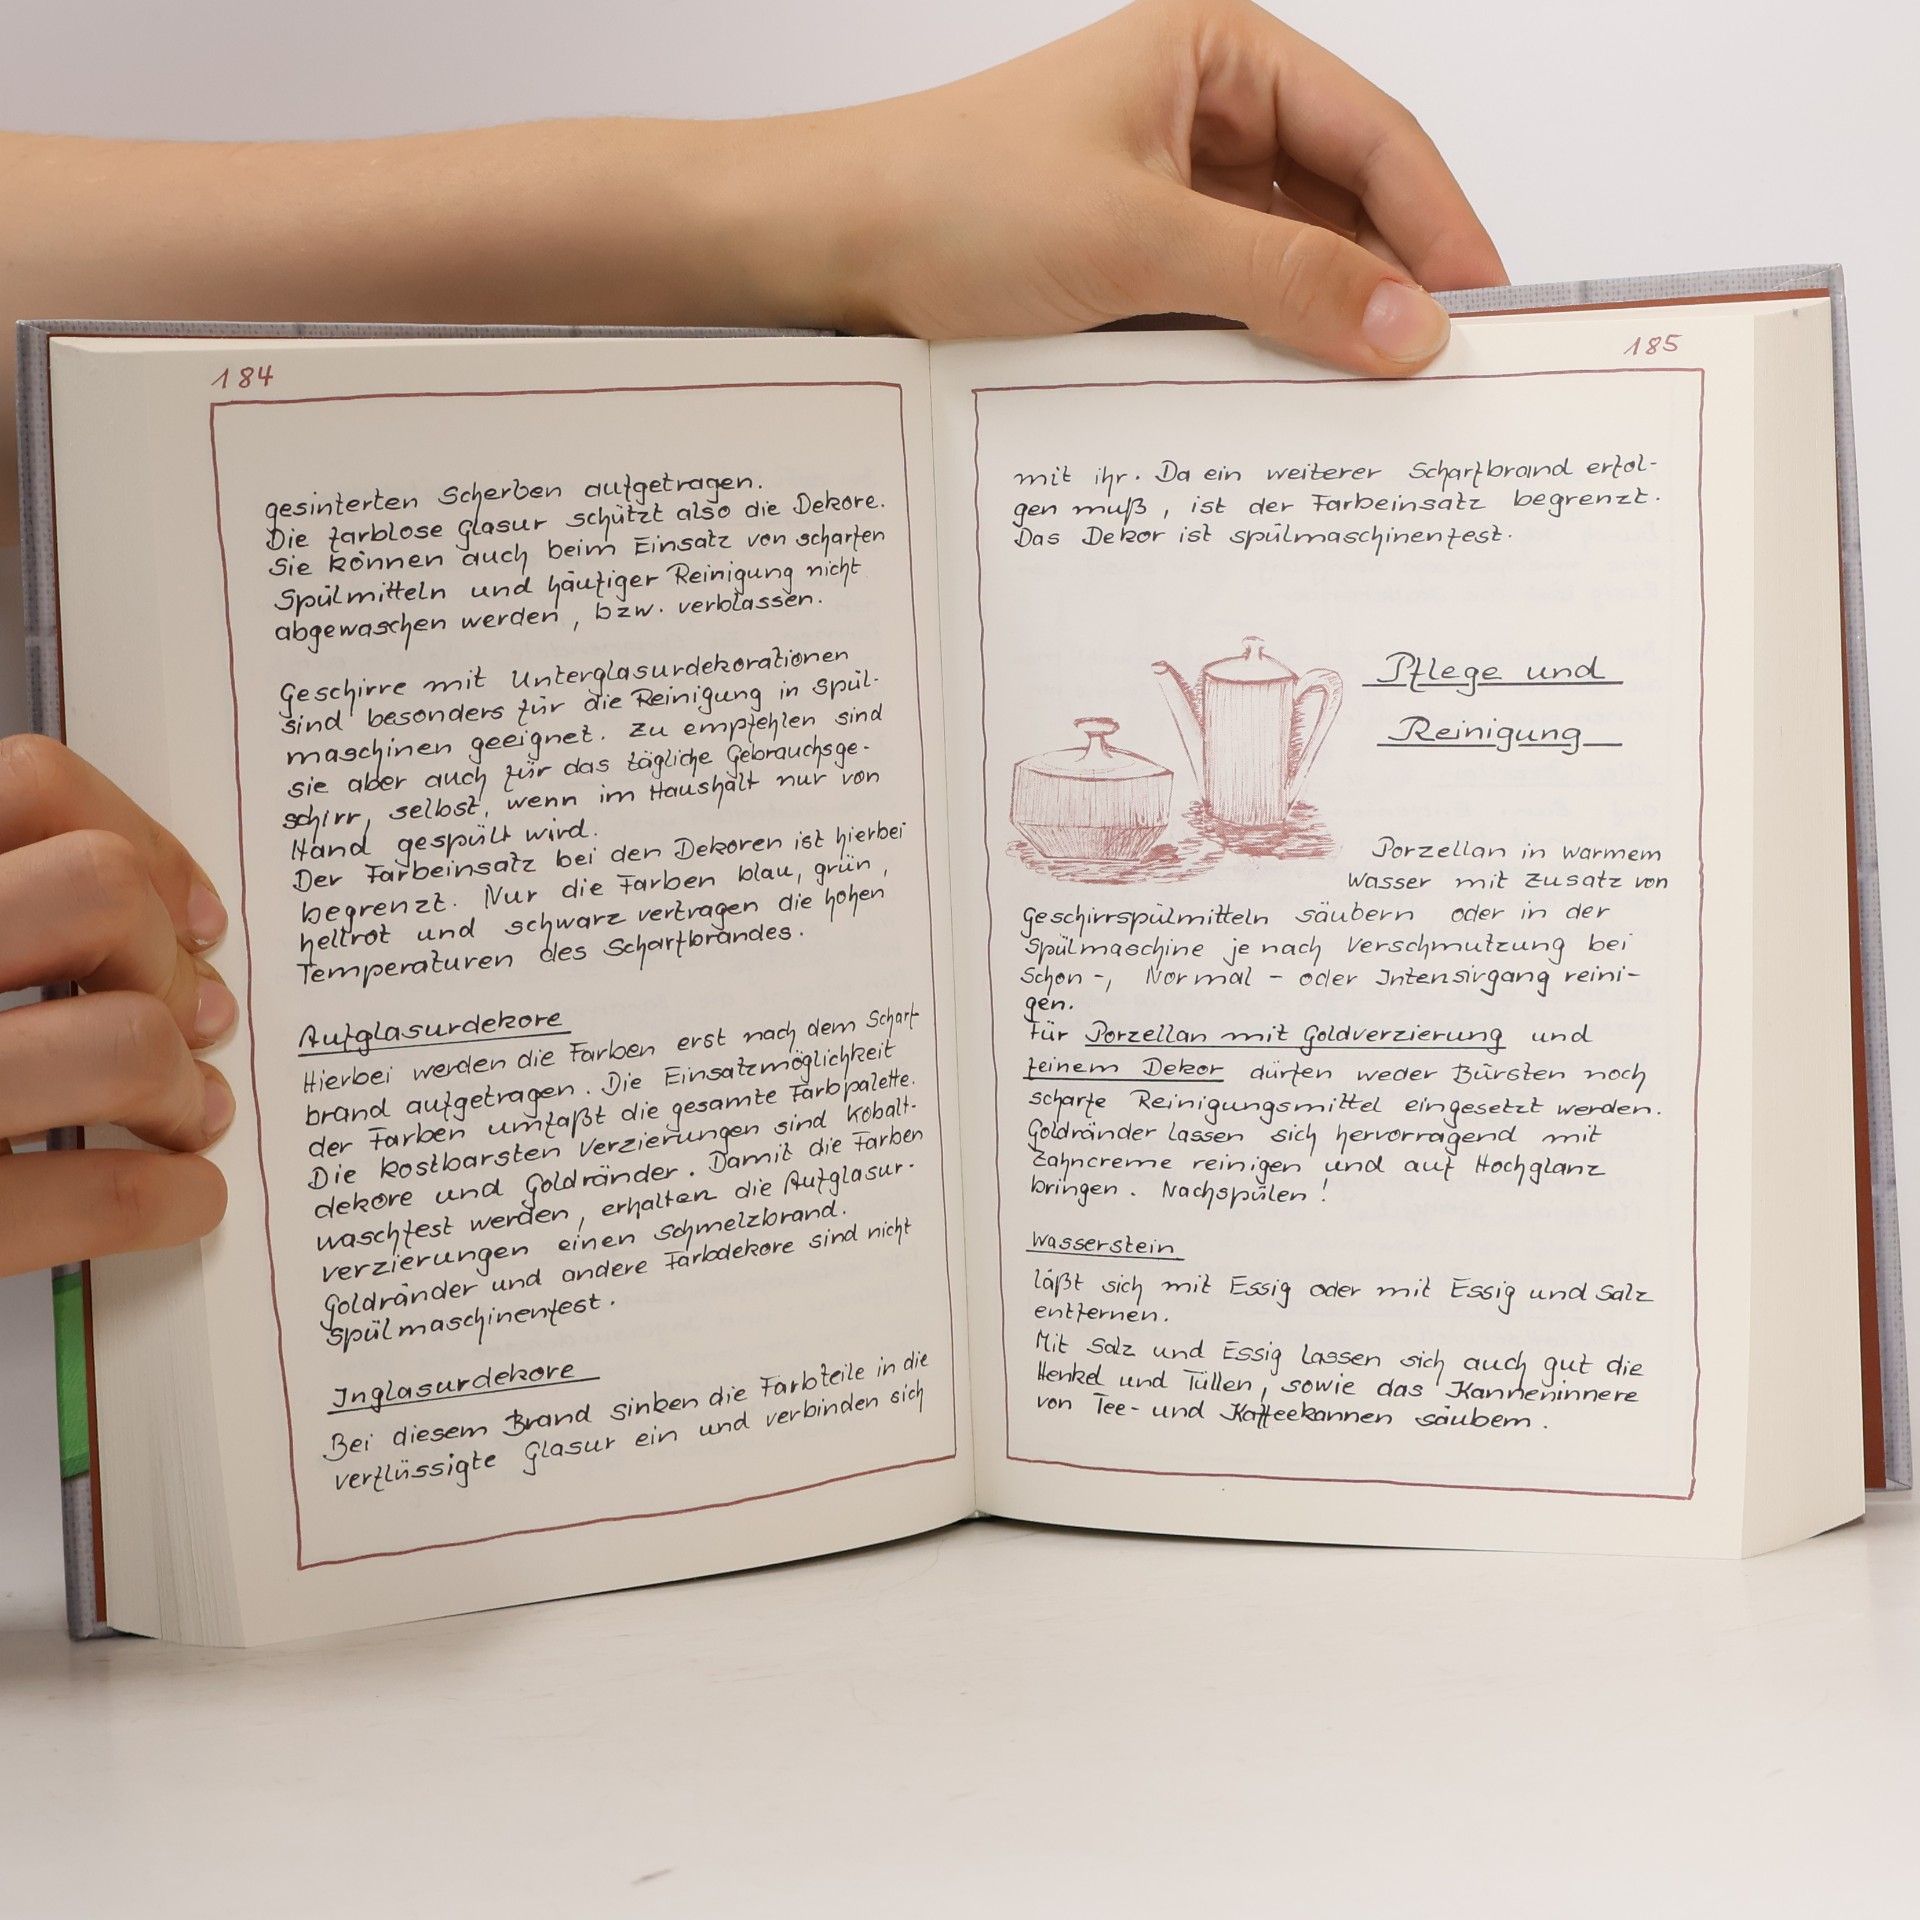 184
gesinterten Scherben aufgetragen.
Die farblose Glasur schützt also die Dekore.
Sie können auch beim Einsatz von scharfen
Spülmitteln und häufiger Reinigung nicht
abgewaschen werden, bzw. verblassen.
Geschirre mit Unterglasurdekorationen
sind besonders für die Reinigung in Spül-
maschinen geeignet. Zu empfehlen sind
sie aber auch für das tägliche Gebrauchsge-
schirr, selbst, wenn im Haushalt nur von
Hand gespült wird.
Der Farbeinsatz bei den Dekoren ist hierbei
begrenzt. Nur die Farben blau, grün,
hellrot und schwarz vertragen die hohen
Temperaturen des Scharfbrandes.
Aufglasurdekore
Hierbei werden die Farben erst nach dem Scharf-
brand aufgetragen. Die Einsatzmöglichkeit
der Farben umfaßt die gesamte Farbpalette.
Die kostbarsten Verzierungen sind Kobalt-
dekore und Goldränder. Damit die Farben
waschfest werden, erhalten die Aufglasur-
verzierungen einen Schmelzbrand.
Goldränder und andere Farbdekore sind nicht
spülmaschinenfest.
Inglasurdekore
Bei diesem Brand sinken die Farbteile in die
verflüssigte Glasur ein und verbinden sich
185
mit ihr. Da ein weiterer Scharfbrand erfol-
gen muß, ist der Farbeinsatz begrenzt.
Das Dekor ist spülmaschinenfest.
Pflege und
Reinigung
Porzellan in warmem
Wasser mit Zusatz von
Geschirrspülmitteln säubern oder in der
Spülmaschine je nach Verschmutzung bei
Schon-, Normal- oder Intensivgang reini-
gen.
Für Porzellan mit Goldverzierung und
feinem Dekor dürfen weder Bürsten noch
scharfe Reinigungsmittel eingesetzt werden.
Goldränder lassen sich hervorragend mit
Zahncreme reinigen und auf Hochglanz
bringen. Nachspülen!
Wasserstein
läßt sich mit Essig oder mit Essig und Salz
entfernen.
Mit Salz und Essig lassen sich auch gut die
Henkel und Tüllen, sowie das Kanneninnere
von Tee- und Kaffeekannen säubern.